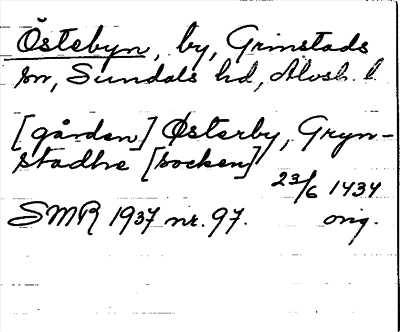 Östebyn, by, Grinstads
sn, Sundals hd, Älvsb. l
[gården] Østerby, Gryn-
stadhe [socken]
23/6 1434
SMR 1937 nr. 97. orig.